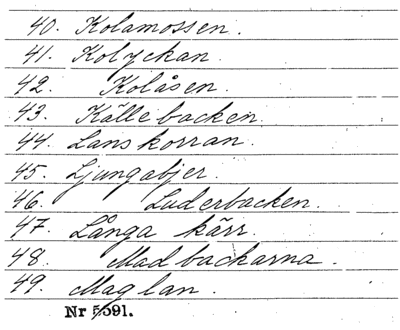 40. Kolamossen.
41. Kolyckan.
42. Kolåsen.
43. Källebacken.
44. Lanskorran.
45. Ljungabjer.
46. Luderbacken.
47. Långa kärr.
48. Mad backarna.
49. Maglan.
Nr 5591.